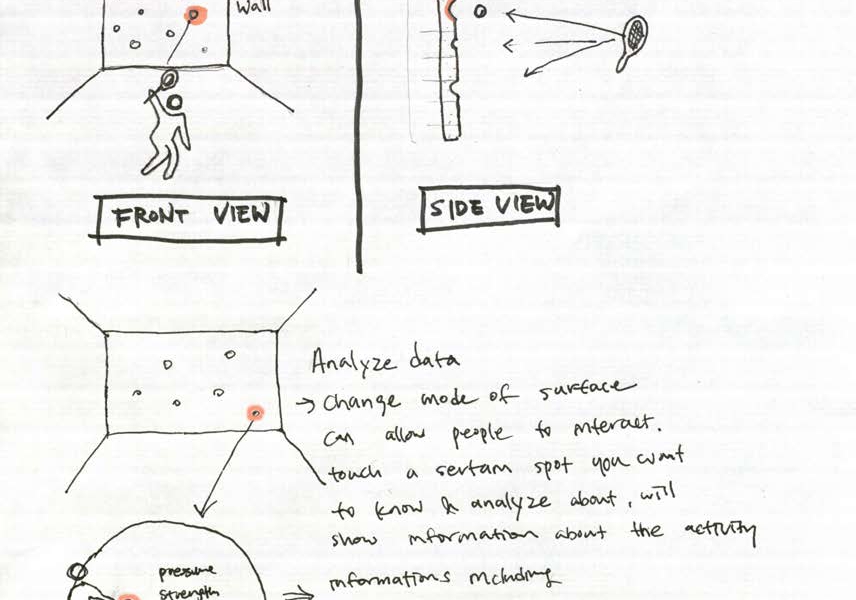 Wall
FRONT VIEW
SIDE VIEW
Analyze data
→ Change mode of surface
can allow people to interact.
touch a sertain spot you want
to know & analyze about, will
show information about the activity
informations including
pressure
strength